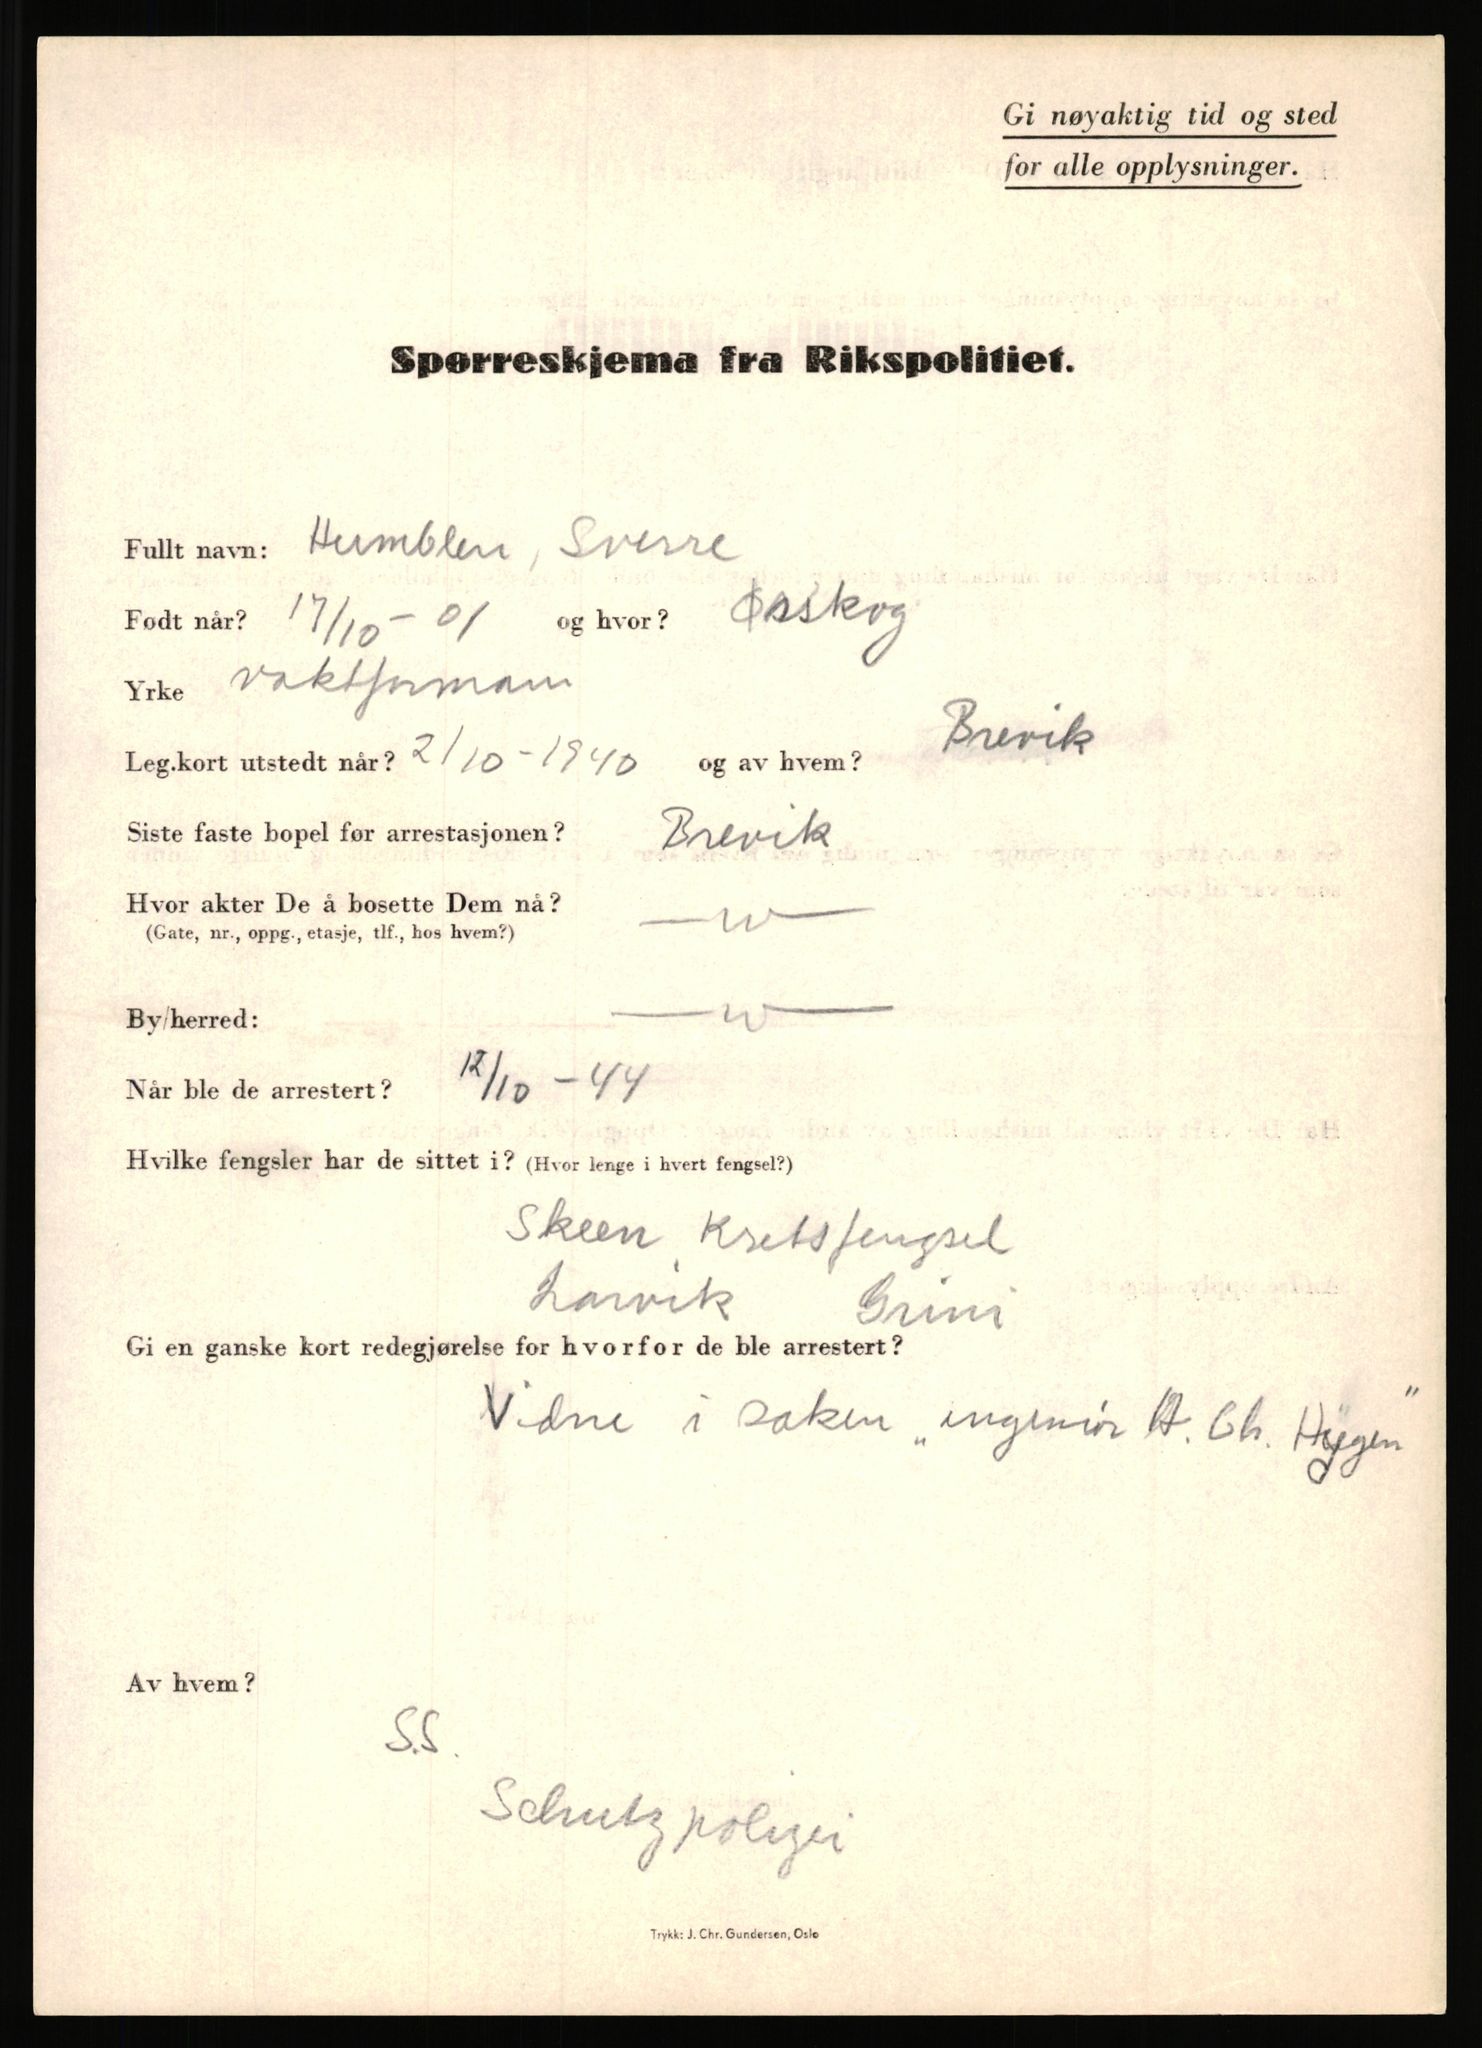 Gi nøyaktig tid og sted
for alle opplysninger.
Spørreskjema fra Rikspolitiet.
Fullt navn: Humblen, Sverre
Født når? 17/10 - 01 og hvor? Ørskog
Yrke vaktformann
Leg.kort utstedt når? 2/10 - 1940 og av hvem? Brevik
Siste faste bopel før arrestasjonen? Brevik
Hvor akter De å bosette Dem nå? —"—
(Gate, nr., oppg., etasje, tlf., hos hvem?)
By/herred: —"—
Når ble de arrestert? 12/10 - 44
Hvilke fengsler har de sittet i? (Hvor lenge i hvert fengsel?)
Skeen Kretsfengsel
Larvik Grini
Gi en ganske kort redegjørelse for hvorfor de ble arrestert?
Vidne i saken „ingeniør A. Ch. Hygen"
Av hvem?
S.S.
Schutzpolizei
Trykk: J. Chr. Gundersen, Oslo